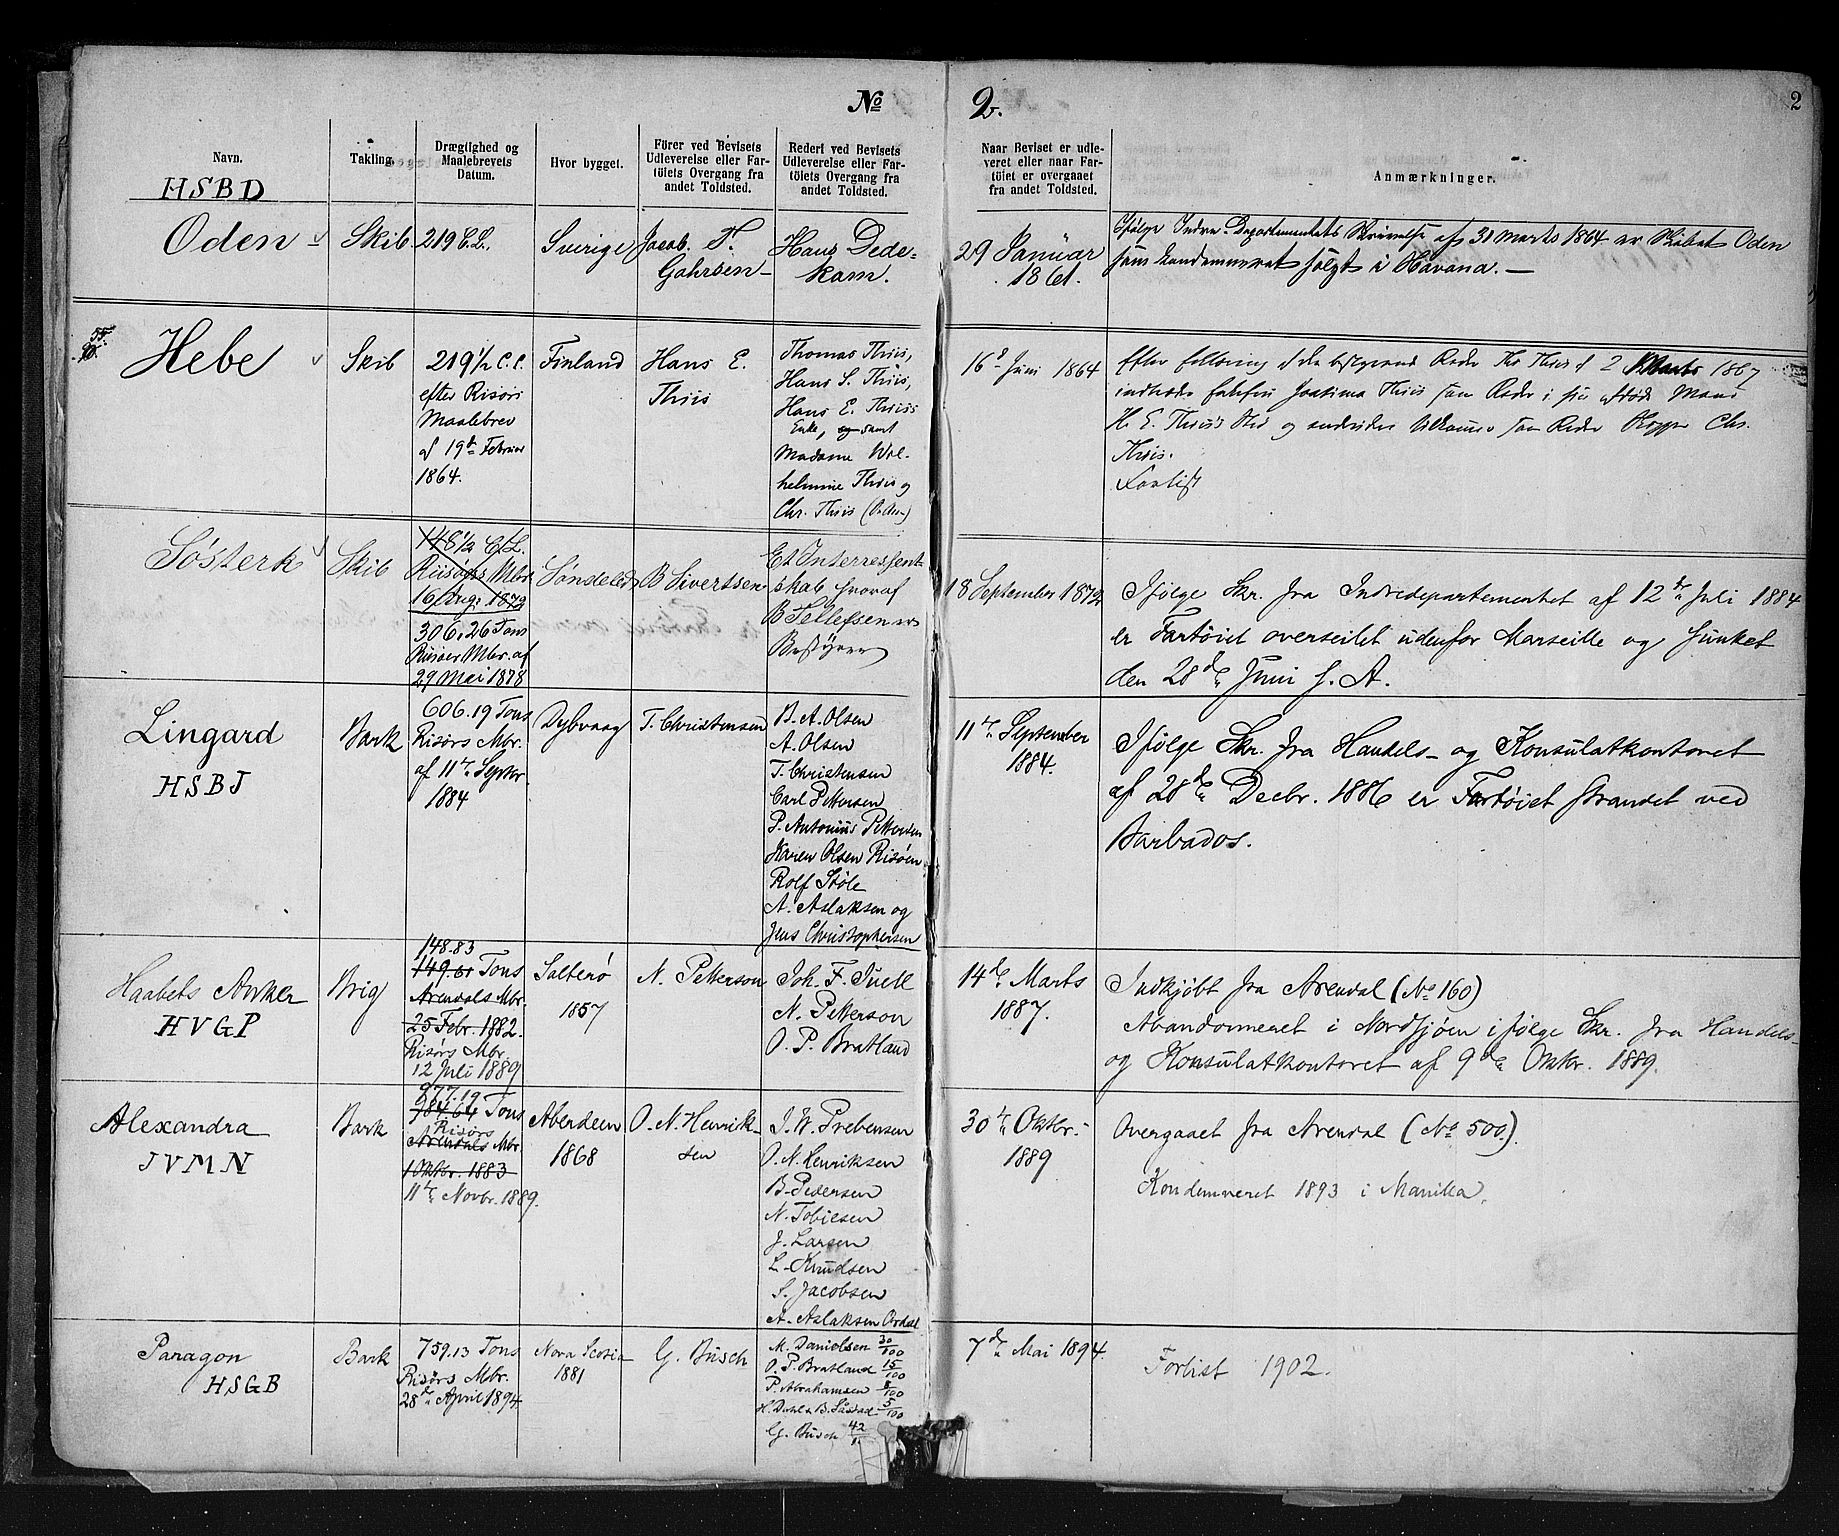 No 2.
2
Navn.
Takling.
Drægtighed og
Maalebrevets
Datum.
Hvor bygget.
Fører ved Bevisets
Udleverelse eller Far-
töiets Overgang fra
andet Toldsted.
Rederi ved Bevisets
Udleverelse eller Far-
töiets Overgang fra
andet Toldsted.
Naar Beviset er udle-
veret eller naar Far-
töiet er overgaaet
fra andet Toldsted.
Anmærkninger.
HSBD
Oden
Skib
219 C.L.
Sverige
Jacob. T.
Gahrsen
Hans Dede-
kam.
29 Januar
1861.
Ifølge Indre-Departementets Skrivelse af 31 Marts 1864 er Skibet Oden
som kondemneret solgt i Havana.
Hebe
Skib
219 1/2 C.L.
efter Risørs
Maalebrev
af 19de Februar
1864.
Finland
Hans E.
Thiis
Thomas Thiis,
Hans S. Thiis,
Hans E. Thiis
Enke, og samt
Madame Wil-
helmine Thiis og
Chr. Thiis
16de Juni 1864
Efter Reder Ths Thiis d 2 Marts 1867
Thiis som Reder i sin Mand
H. E. Thiis's Sted og som Reder Chr.
Thiis.
Forlist
Søsterk
Skib
148 1/2 C.L.
Riisøers Mbr.
16 Aug. 1872
306,26 Tons
Riisøer Mbr. af
29 Mai 1878
Søndeled
B Sivertsen
Et Interressent-
skab hvoraf
B Sellefsen er
Bestyrer
18 September 1872
Ifølge Skr. fra Indredepartementet af 12te Juli 1884
er Fartøiet overseilet udenfor Marseille og sunket
den 28de Juni s. A.
Lingard
HSBJ
Bark
606.19 Tons
Risørs Mbr.
af 11te Septbr
1884
Dybvaag
T. Christensen
B. A. Olsen
A. Olsen
T. Christensen
Carl Pettersen
P. Antonius Pettersen
Karen Olsen Risøen
Rolf Støle
A. Aslaksen og
Jens Christophersen
11te September
1884.
Ifølge Skr. fra Handels- og Konsulatkontoret
af 28de Decbr. 1886 er Fartøiet strandet ved
Barbados.
Haabets Anker
HVGP
Brig
148.83
149.61 Tons
Arendals Mbr.
25 Febr. 1882.
Risørs Mbr.
12 Juli 1889
Salterø
1857
N. Petterson
Joh. F. Juell
N. Petterson
O. P. Bratland
14de Marts
1887.
Indkjøbt fra Arendal (No 160)
Abandonneret i Nordsjøen ifølge Skr. fra Handels-
og Konsulatkontoret af 9de Oktbr. 1889.
Alexandra
JVMN
Bark
977.19
984.64 Tons
Risørs
Arendals Mbr.
1 Oktbr. 1883
11te Novbr. 1889.
Aberdeen
1868
O. N. Henrik-
sen
J. W. Prebensen
O. N. Henriksen
B. Pedersen
N. Tobiesen
J. Larsen
L. Knudsen
S. Jacobsen
A. Aslaksen
30te Oktbr.
1889
Overgaaet fra Arendal (No 500).
Kondemneret 1893 i Manilla.
Paragon
HSGB
Bark
759.13 Tons
Risørs Mbr.
28de April 1894
Nova Scotia
1881
G. Busch
M. Danielsen 30/100
O. P. Bratland 15/100
P. Abrahamsen 8/100
H. Dahl & B. Såstad 5/100
G. Busch 42/
7de Mai 1894.
Forlist 1902.